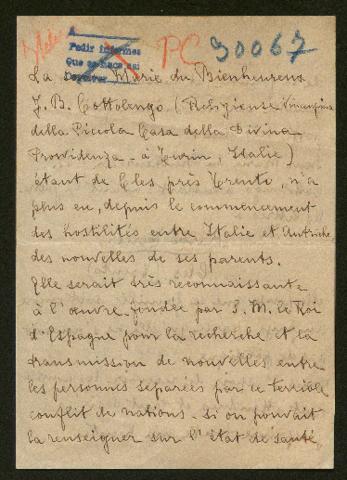 A
Pedir informes
Que se hace así
Devolver
PC 30067
La Marie du Bienheureux
J. B. Cottolengo (Religieuse Vincenzina
della Piccola Casa della Divina
Provvidenza - à Turin, Italie)
étant de Cles près Trento, n'a
plus eu, depuis le commencement
des hostilités entre Italie et Autriche
des nouvelles de ses parents.
Elle serait très reconnaissante
à l'œuvre fondée par S. M. le Roi
d'Espagne pour la recherche et la
transmission de nouvelles entre
les personnes séparées par ce terrible
conflit de nations - si on pouvait
la renseigner sur l'état de santé